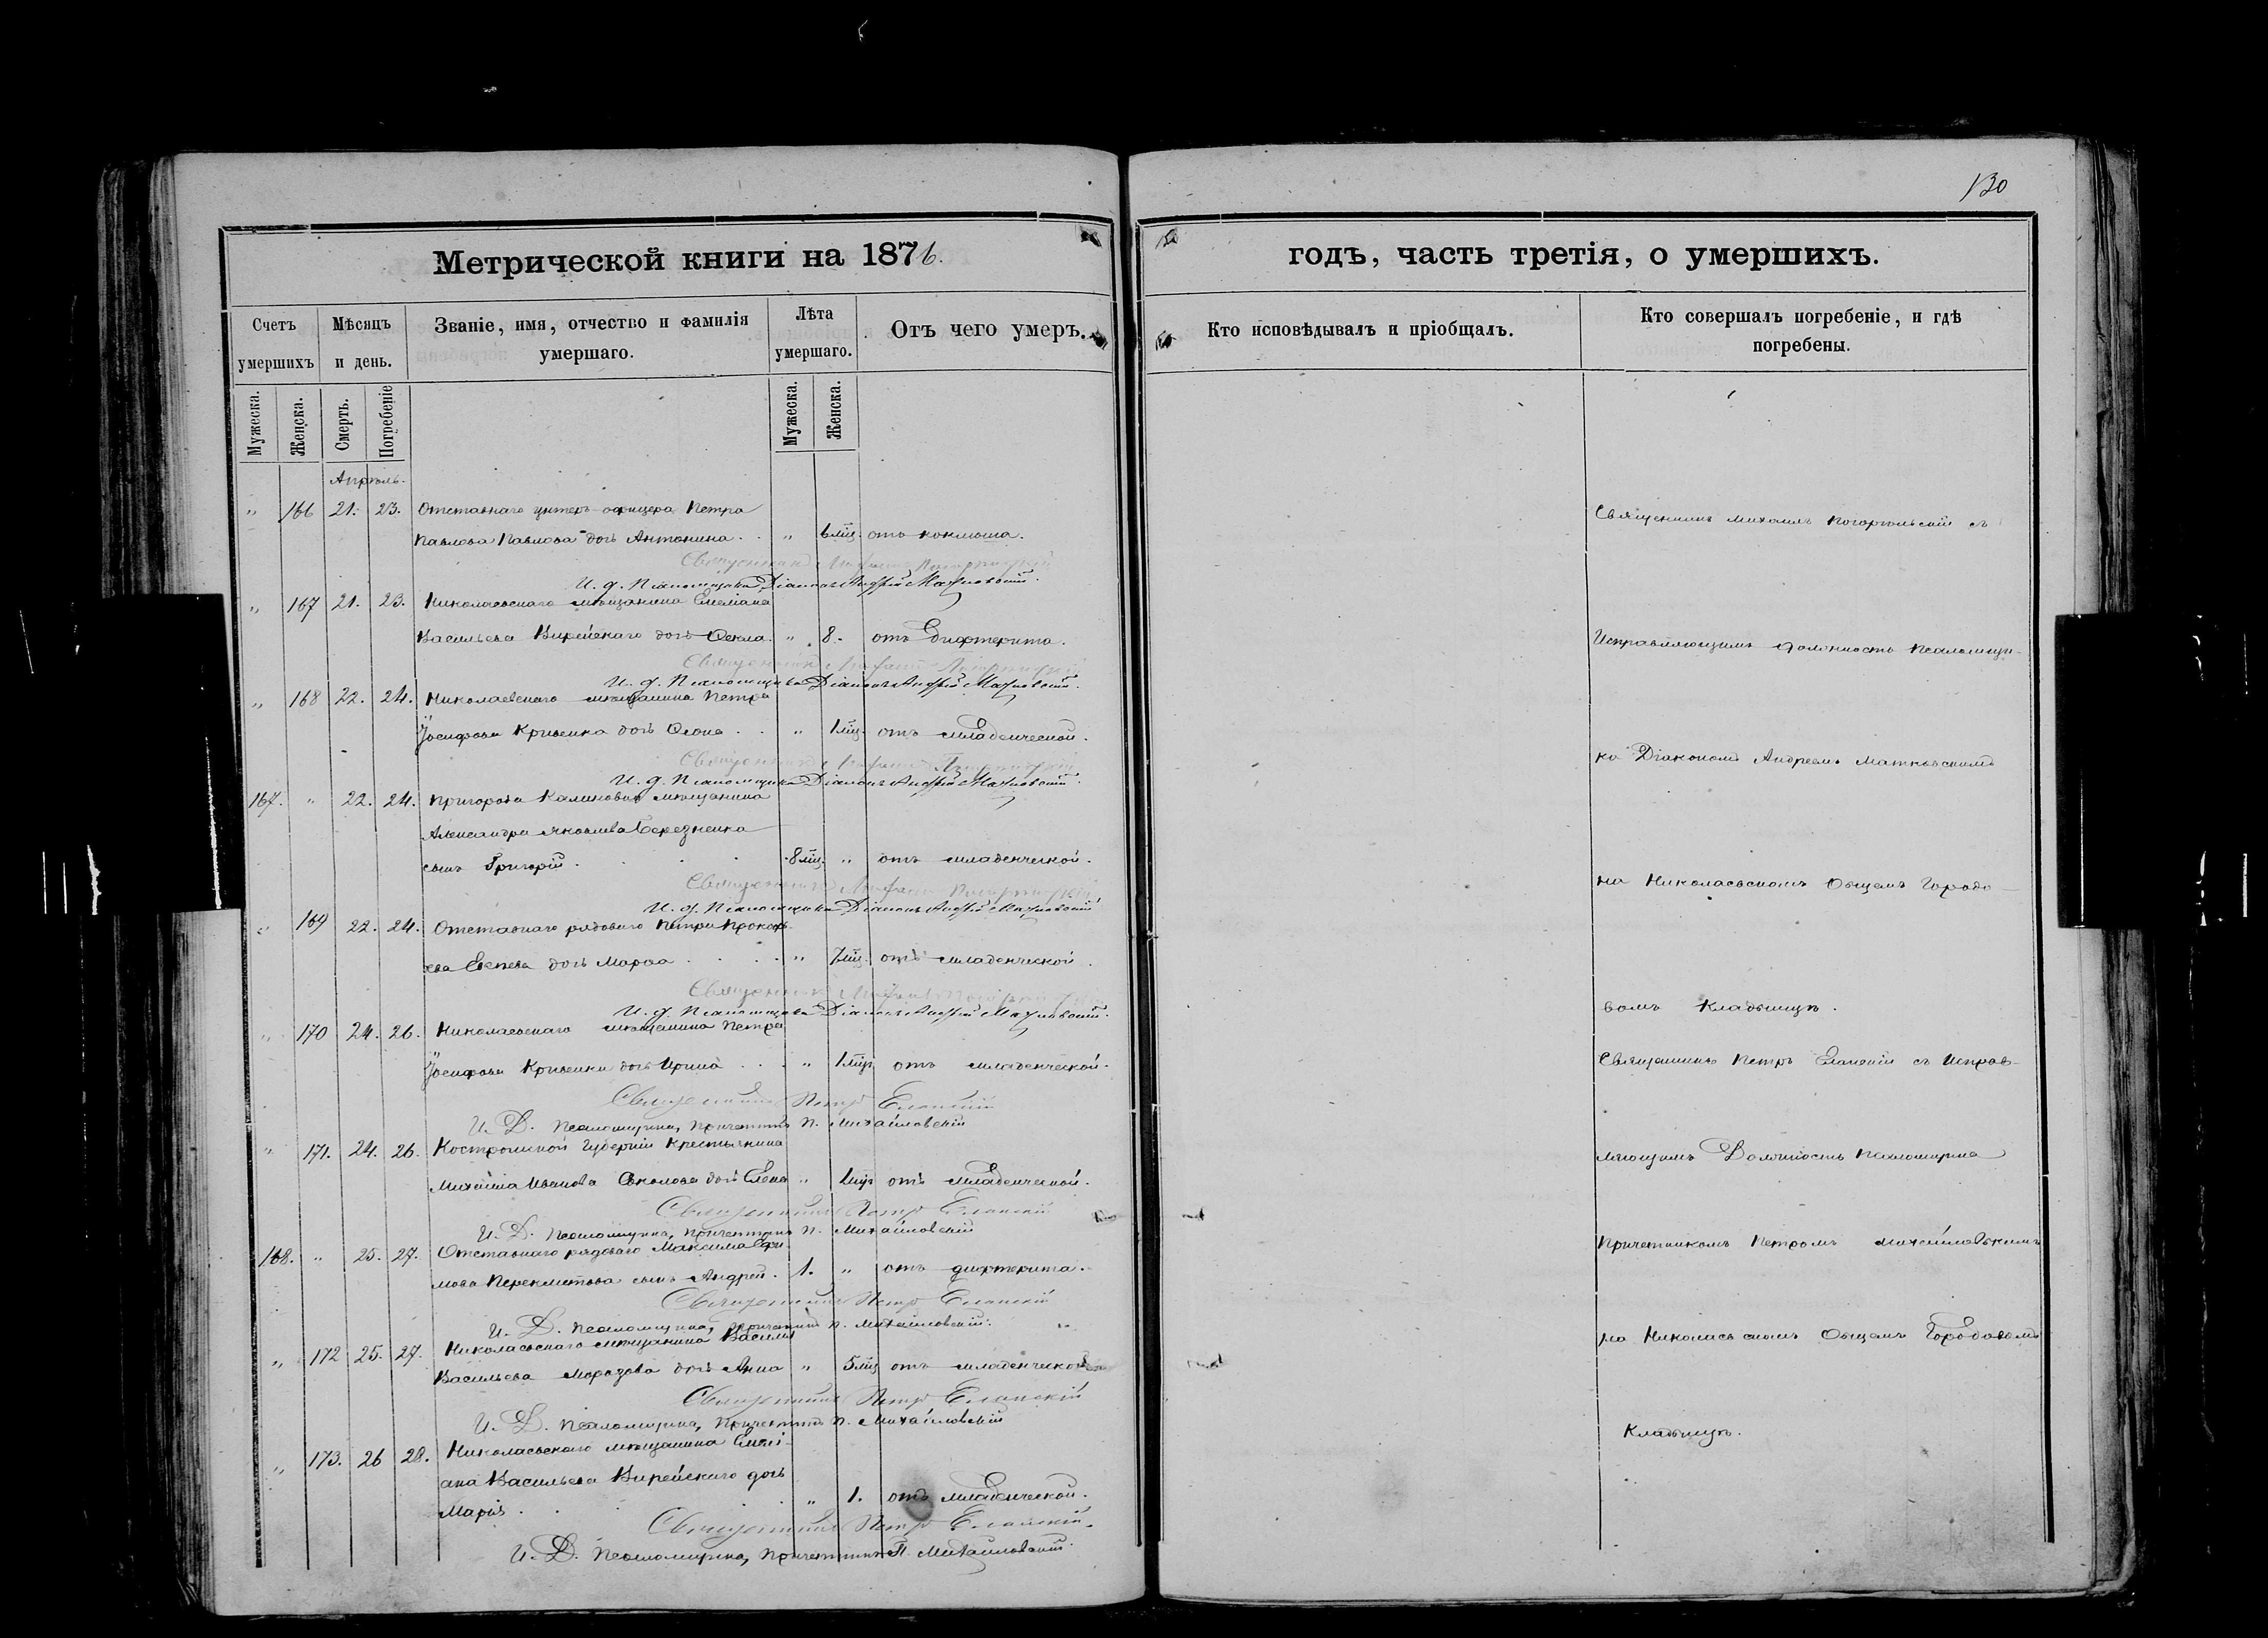 130
Метрической книги на 1876.
годъ, часть третія, о умершихъ.
Счетъ умершихъ
Мѣсяцъ и день.
Званіе, имя, отчество и фамилія умершаго.
Лѣта умершаго.
Отъ чего умеръ.
Кто исповѣдывалъ и пріобщалъ.
Кто совершалъ погребеніе, и гдѣ погребены.
Мужеска.
Женска.
Смерть.
Погребеніе
Мужеска.
Женска.
Апрѣль.
" 166 21. 23. Отставнаго унтеръ-офицера Петра
Павлова Павлова дочь Антонина . . " 6 мѣц. отъ коклюша.
Священникъ Михаилъ
И. д. Псаломщика, Діаконъ Андрей
" 167 21. 23. Николаевскаго мѣщанина Емеліана
Васильева Вирейскаго дочь Ѳекла. " 8. отъ дифтерита.
Священникъ Михаилъ
И. д. Псаломщика Діаконъ Андрей
" 168 22. 24. Николаевскаго мѣщанина Петра
Іосифова Кривенка дочь . . " 1 мѣц. отъ младенческой.
Священникъ Михаилъ
И. д. Псаломщика Діаконъ Андрей
167. " 22. 24. Пригорода мѣщанина
Александра Яковлева Березненка
сынъ Григорій . . . . 8 мѣц. " отъ младенческой.
Священникъ Михаилъ
И. д. Псаломщика Діаконъ Андрей
" 169 22. 24. Отставнаго рядоваго Петра
дочь Марѳа . . . . " 7 мѣц. отъ младенческой.
Священникъ Михаилъ
И. д. Псаломщика Діаконъ Андрей
" 170 24. 26. Николаевскаго мѣщанина Петра
Іосифова Кривенки дочь Ирина . . . " 1 мѣц. отъ младенческой.
Священникъ Петръ Еланскій
И. Д. Псаломщика, Причетникъ П. Михайловскій
" 171. 24. 26. Костромской Губерніи Крестьянина
Михаила Иванова Соколова дочь Елена " 1 мѣц отъ младенческой.
Священникъ Петръ Еланскій
И. Д. Псаломщика, Причетникъ П. Михайловскій
168. " 25. 27. Отставнаго рядоваго Максима Ефи
мова сынъ Андрей. 1. " отъ дифтерита.
Священникъ Петръ Еланскій
И. Д. Псаломщика, Причетникъ П. Михайловскій.
" 172 25. 27. Николаевскаго мѣщанина Василія
Васильева Морозова дочь Анна " 5 мѣц отъ младенческой
Священникъ Петръ Еланскій
И. Д. Псаломщика, Причетникъ П. Михайловскій
" 173. 26 28. Николаевскаго мѣщанина Емелі-
ана Васильева Вирейскаго дочь
Марія . . " 1. отъ младенческой.
Священникъ Петръ Еланскій.
И. Д. Псаломщика, Причетникъ П. Михайловскій.
Священникъ Михаилъ съ
Исправляющимъ должность Псаломщи-
ка Діакономъ Андреемъ
на Николаевскомъ Общемъ Городо-
вомъ Кладбищѣ.
Священникъ Петръ Еланскій съ Исправ-
ляющимъ Должность Псаломщика
Причетникомъ Петромъ Михайловскимъ
на Николаевскомъ Общемъ Городовомъ
Кладбищѣ.